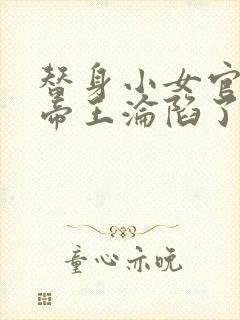 替身小女官
帝王淪陷了
童心亦晚